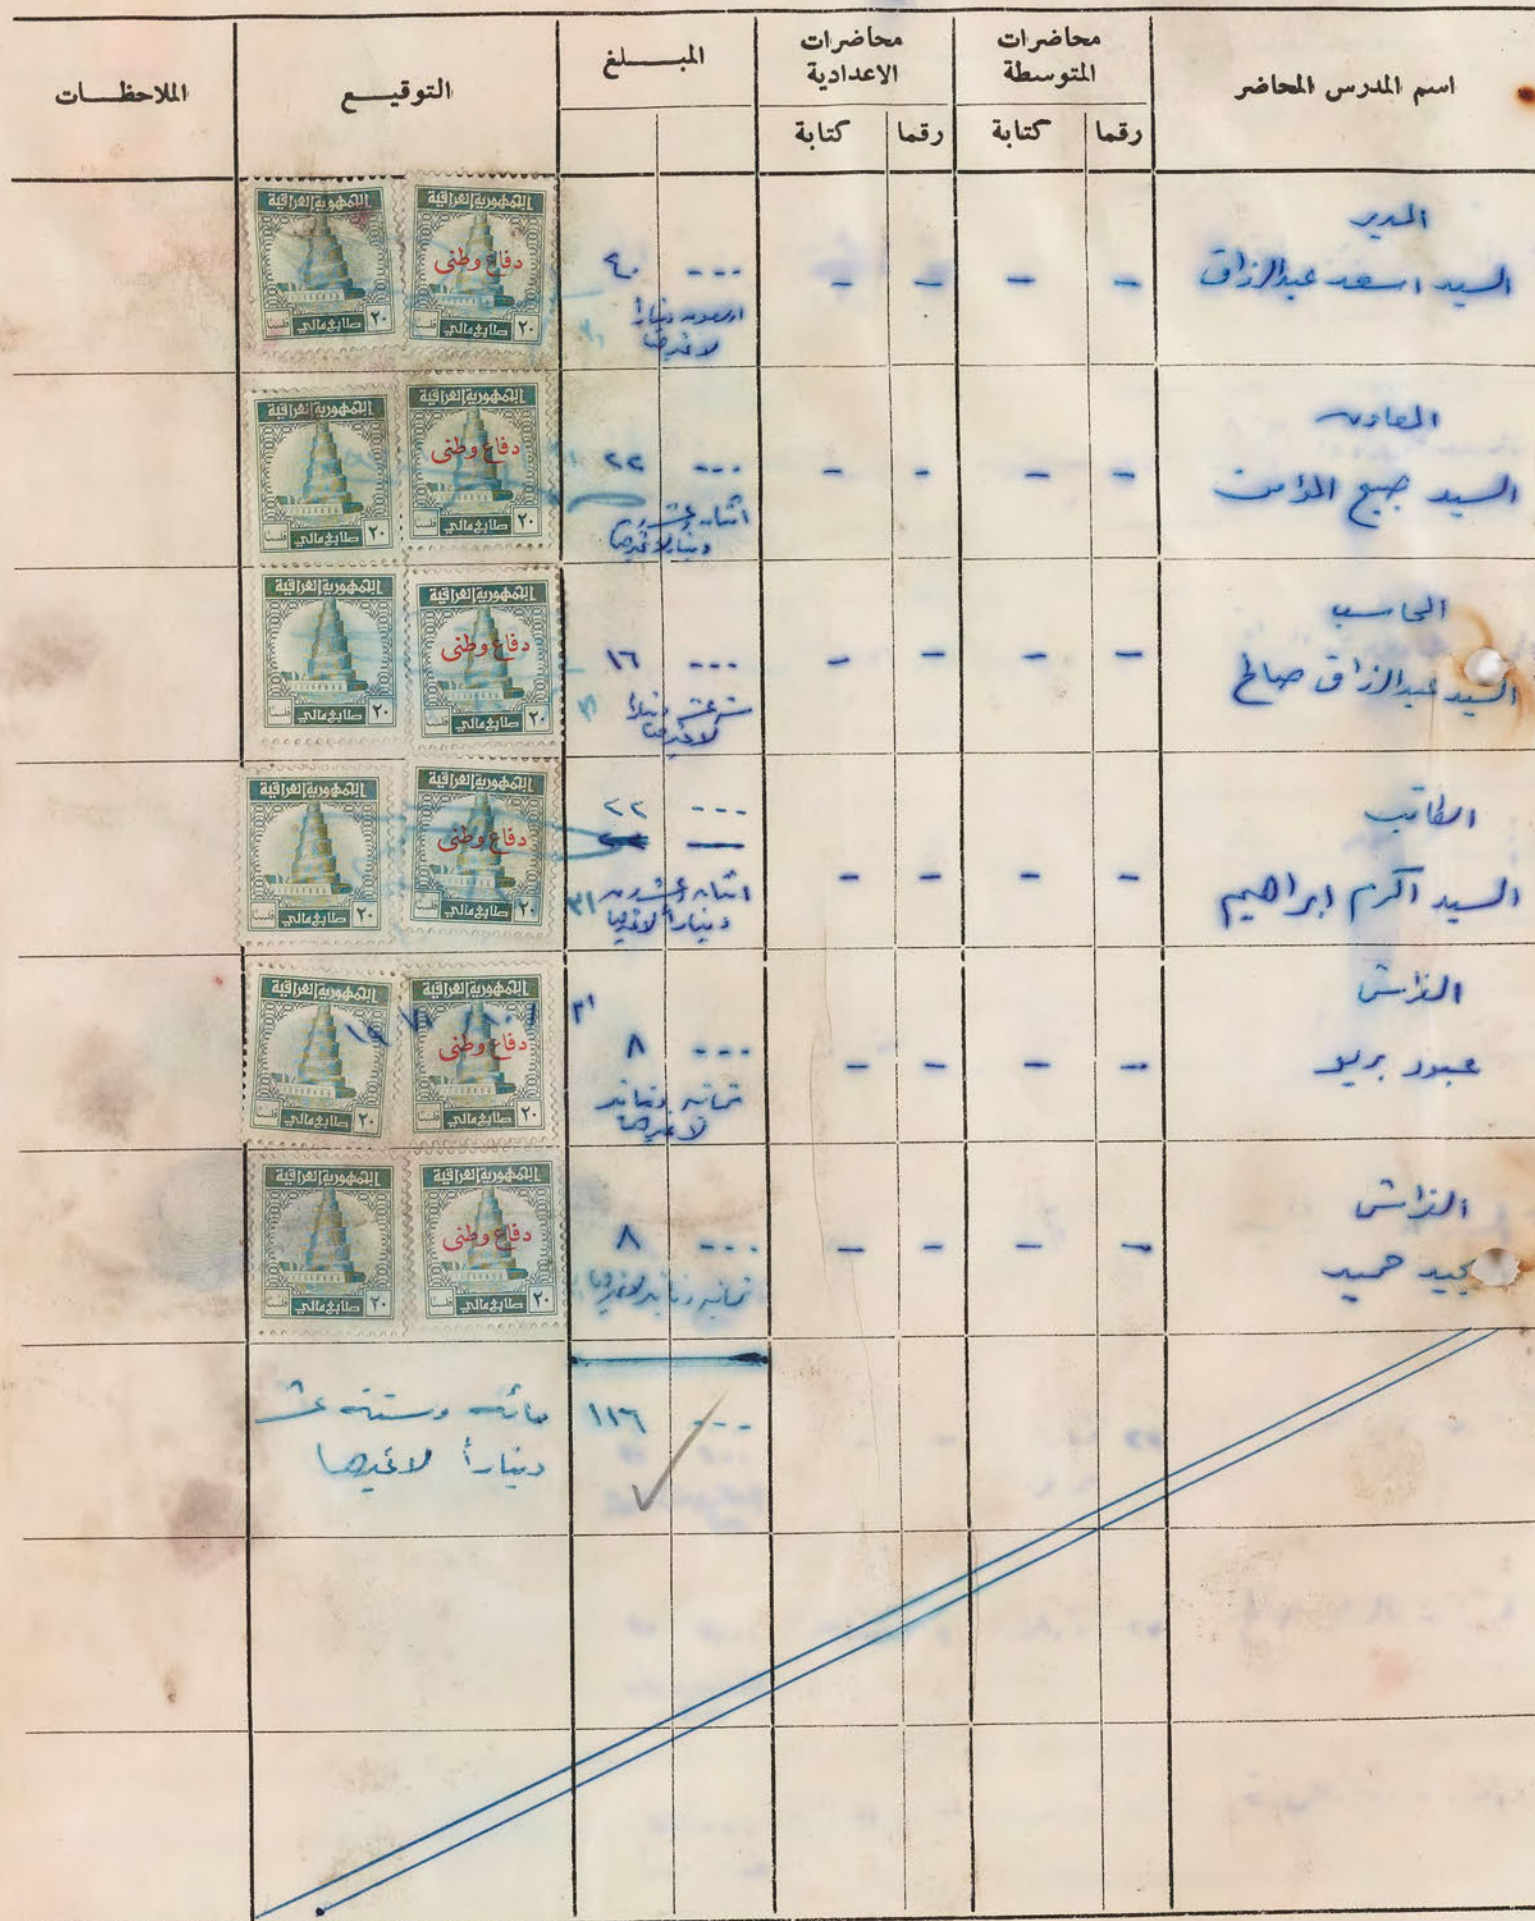 اسم المدرس المحاضر
محاضرات المتوسطة
محاضرات الاعدادية
المبلغ
التوقيع
الملاحظات
رقما
كتابة
رقما
كتابة
المدير
السيد اسعد عبدالرزاق
- - - -
--- ٤٠
اربعون ديناراً
لا غيرها
الجمهورية العراقية
دفاع وطني
٢٠ طابع مالي فلسًا
الجمهورية العراقية
٢٠ طابع مالي فلسًا
المعاون
السيد صبيح المؤمن
- - - -
--- ٢٢
اثنان وعشرون
دينار لا غيرها
الجمهورية العراقية
دفاع وطني
٢٠ طابع مالي فلسًا
الجمهورية العراقية
٢٠ طابع مالي فلسًا
المحاسب
السيد عبدالرزاق صالح
- - - -
--- ١٦
ستة عشر ديناراً
لا غيرها
الجمهورية العراقية
دفاع وطني
٢٠ طابع مالي فلسًا
الجمهورية العراقية
٢٠ طابع مالي فلسًا
الكاتب
السيد اكرم ابراهيم
- - - -
--- ٢٢
اثنان وعشرون
ديناراً لا غيرها
٣١
الجمهورية العراقية
دفاع وطني
٢٠ طابع مالي فلسًا
الجمهورية العراقية
٢٠ طابع مالي فلسًا
الفراش
عبود
- - - -
--- ٨
ثمانية دنانير
لا غيرها
الجمهورية العراقية
دفاع وطني
٢٠ طابع مالي فلسًا
الجمهورية العراقية
٢٠ طابع مالي فلسًا
الفراش
مجيد حميد
- - - -
--- ٨
ثمانية دنانير لا غيرها
الجمهورية العراقية
دفاع وطني
٢٠ طابع مالي فلسًا
الجمهورية العراقية
٢٠ طابع مالي فلسًا
--- ١١٦
مائة وستة عشر
ديناراً لا غيرها